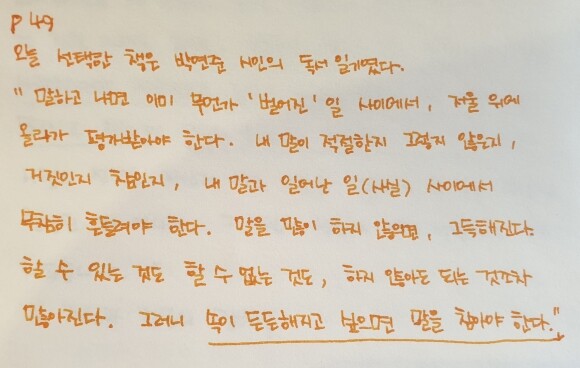 P 49
오늘 선택한 책은 박연준 시인의 독서 일기였다.
" 말하고 나면 이미 무언가 '벌어진' 일 사이에서, 저울 위에
올라가 평가받아야 한다. 내 말이 적절한지 그렇지 않은지,
거짓인지 참인지, 내 말과 일어난 일(사실) 사이에서
무참히 흔들려야 한다. 말을 많이 하지 않으면, 그득해진다.
할 수 있는 것도 할 수 없는 것도, 하지 않아도 되는 것조차
많아진다. 그러니 속이 든든해지고 싶으면 말을 참아야 한다."